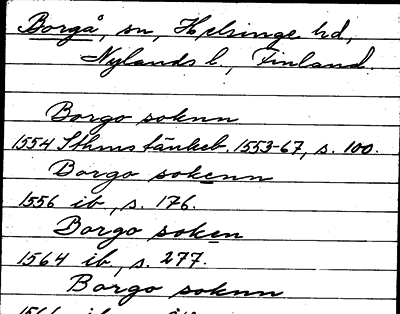 Borgå, sn, Helsinge hd,
Nylands l., Finland.
Borgo soknn
1554 Sthms tänkeb. 1553-67, s. 100.
Borgo sokenn
1556 ib., s. 176.
Borgo soken
1564 ib., s. 277.
Borgo soknn